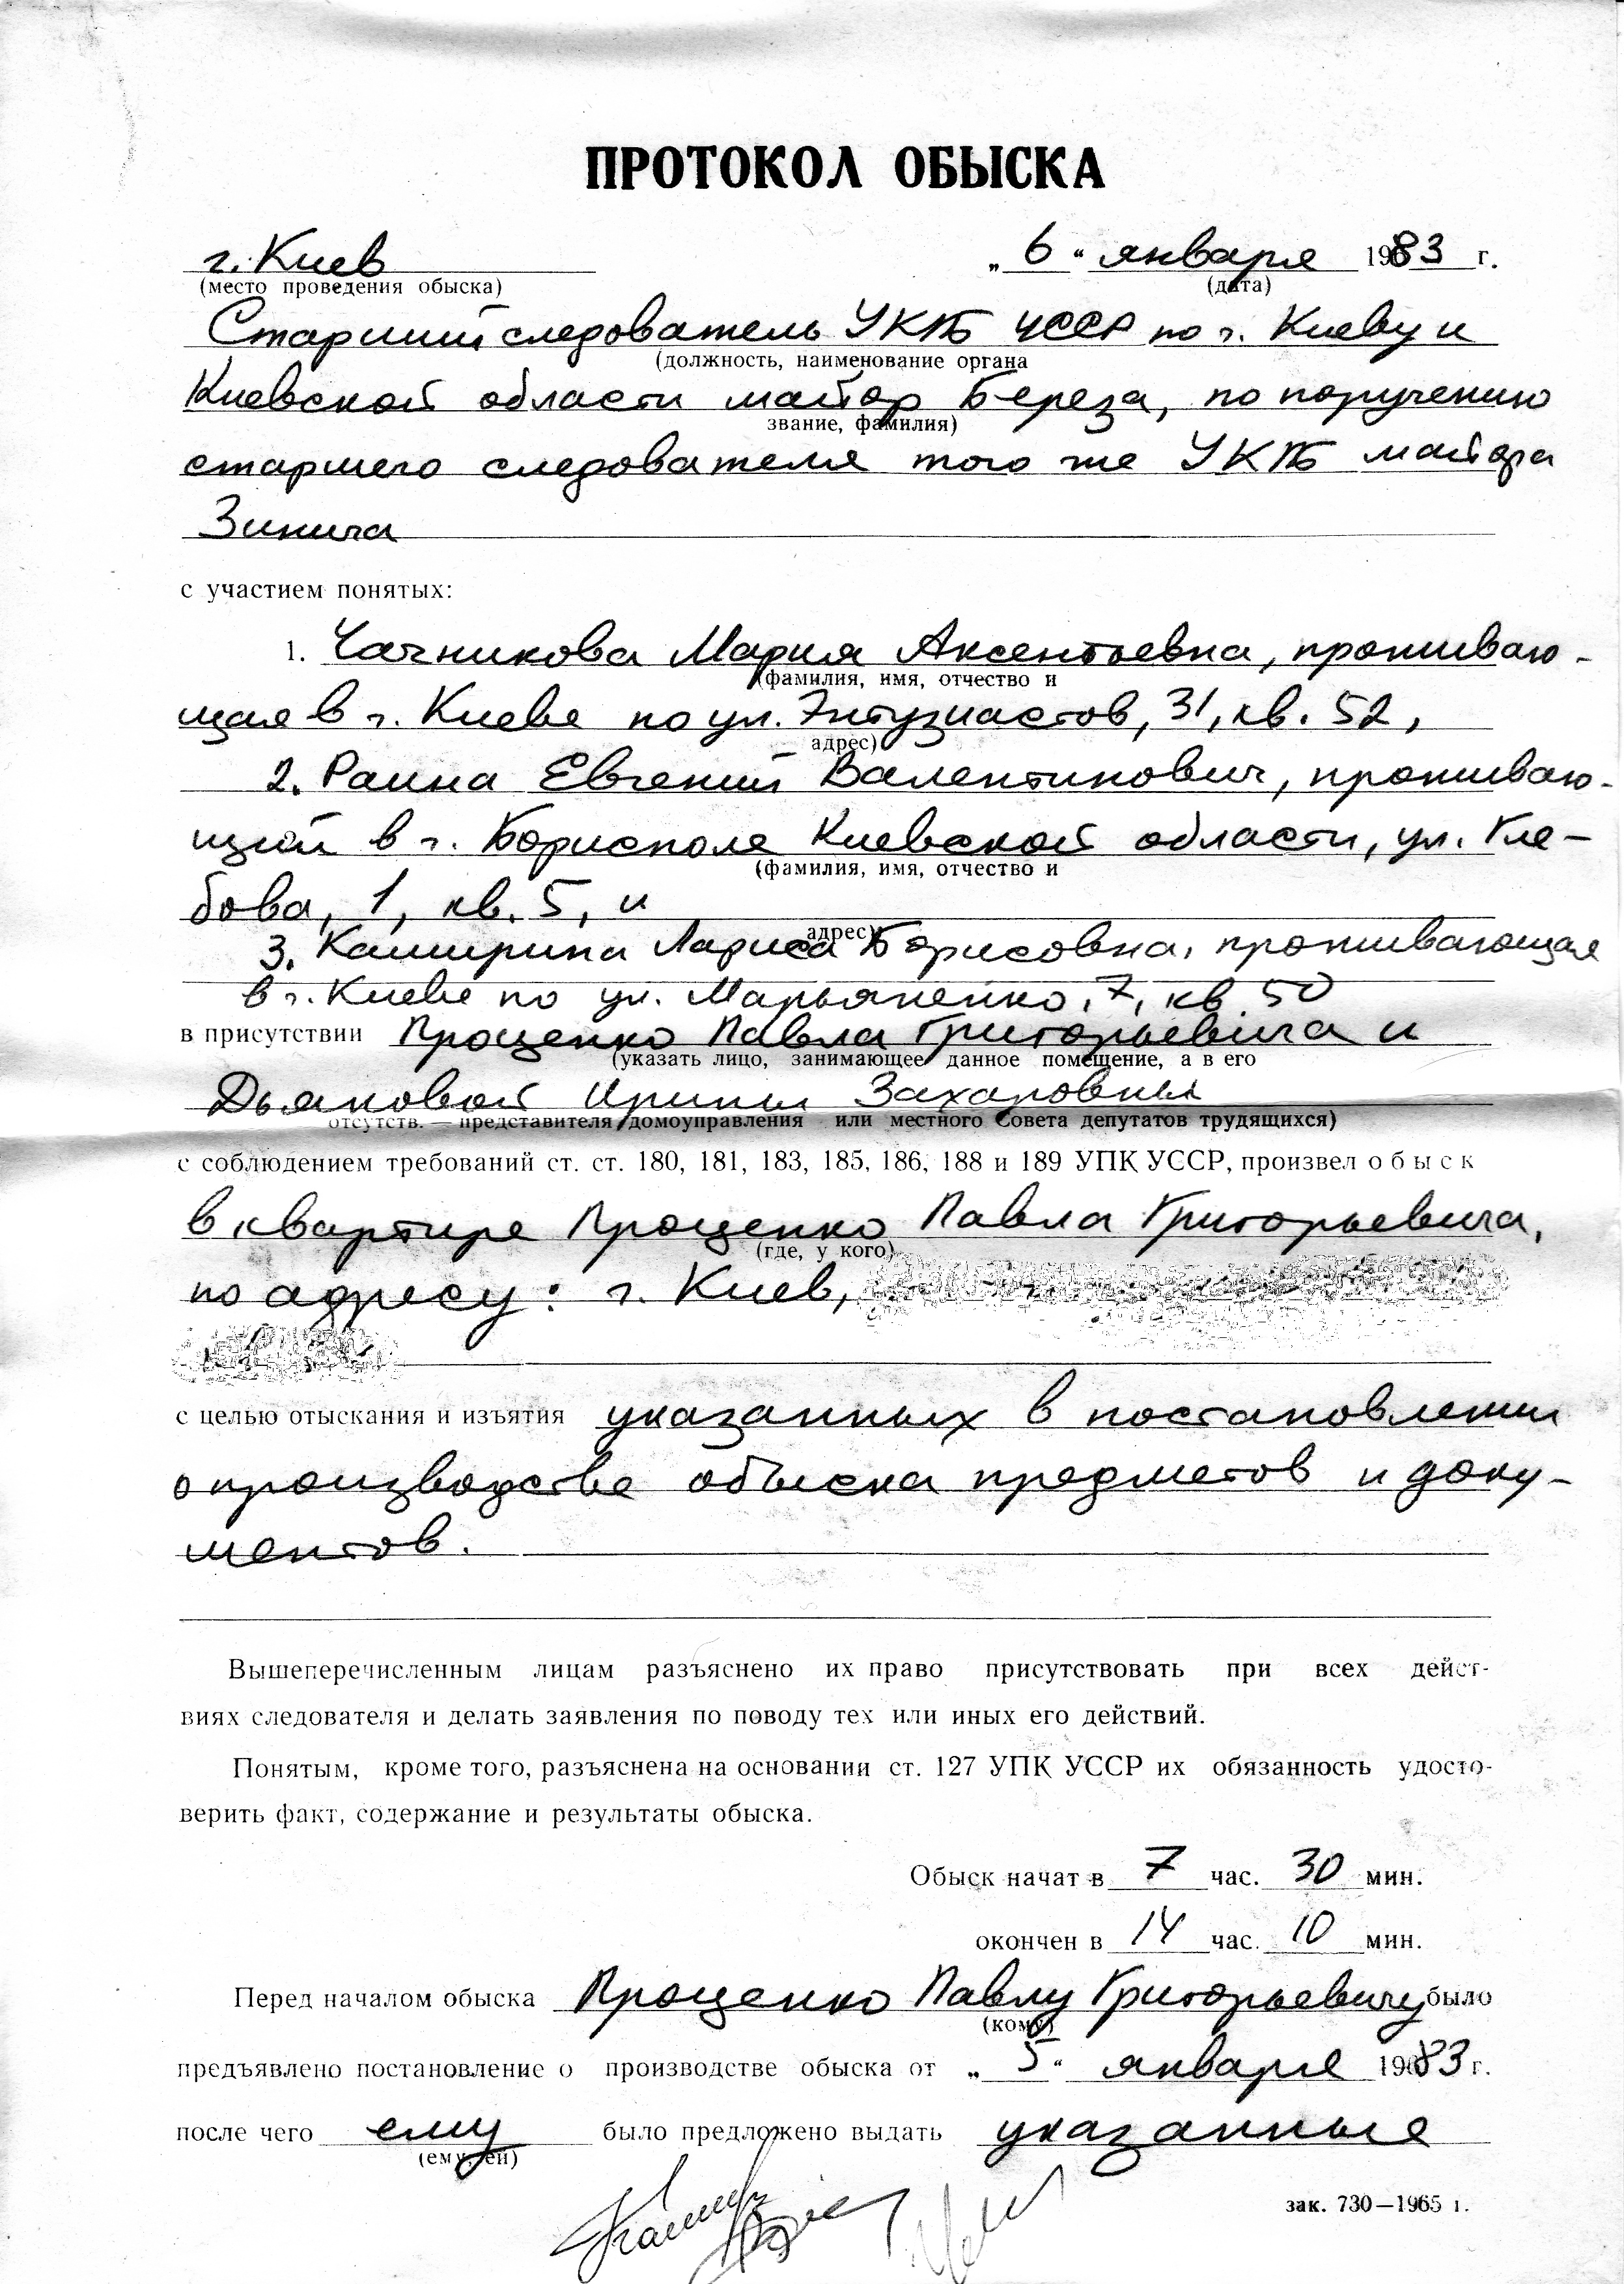 ПРОТОКОЛ ОБЫСКА
г. Киев „6“ января 1983 г.
(место проведения обыска) (дата)
Старший следователь УКГБ УССР по г. Киеву и
(должность, наименование органа
Киевской области майор Береза, по поручению
звание, фамилия)
старшего следователя того же УКГБ майора
Зинича
с участием понятых:
1. Чачникова Мария Аксентьевна, проживаю-
(фамилия, имя, отчество и
щая в г. Киеве по ул. Энтузиастов, 31, кв. 52,
адрес)
2. Раина Евгений Валентинович, проживаю-
щий в г. Борисполе Киевской области, ул. Гле-
(фамилия, имя, отчество и
бова, 1, кв. 5, и
адрес)
3. Каширина Лариса Борисовна, проживающая
в г. Киеве по ул. Марьяненко, 7, кв. 50
в присутствии Проценко Павла Григорьевича и
(указать лицо, занимающее данное помещение, а в его
Дьяковой Ирины Захаровны
отсутств. — представителя домоуправления или местного Совета депутатов трудящихся)
с соблюдением требований ст. ст. 180, 181, 183, 185, 186, 188 и 189 УПК УССР, произвел обыск
в квартире Проценко Павла Григорьевича,
(где, у кого)
по адресу: г. Киев,
с целью отыскания и изъятия указанных в постановлении
о производстве обыска предметов и доку-
ментов.
Вышеперечисленным лицам разъяснено их право присутствовать при всех дейст-
виях следователя и делать заявления по поводу тех или иных его действий.
Понятым, кроме того, разъяснена на основании ст. 127 УПК УССР их обязанность удосто-
верить факт, содержание и результаты обыска.
Обыск начат в 7 час. 30 мин.
окончен в 14 час. 10 мин.
Перед началом обыска Проценко Павлу Григорьевичу было
(кому)
предъявлено постановление о производстве обыска от „5“ января 1983 г.
после чего ему было предложено выдать указанные
(ему, ей)
зак. 730—1965 г.